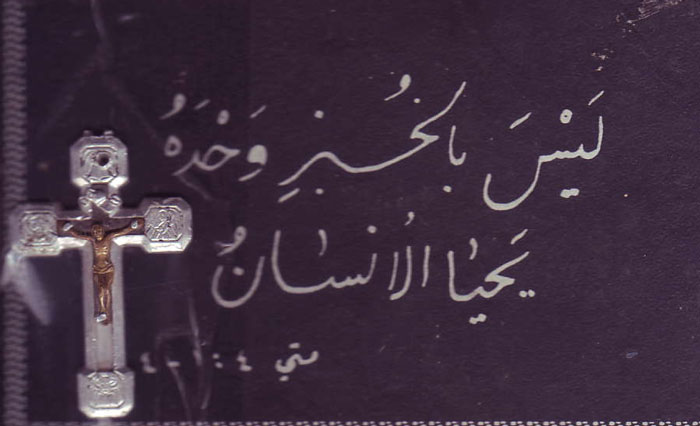 لَيْسَ بالخُبزِ وَحْدَهُ
يَحيَا الاُنسَانُ
متي ٤ : ٤